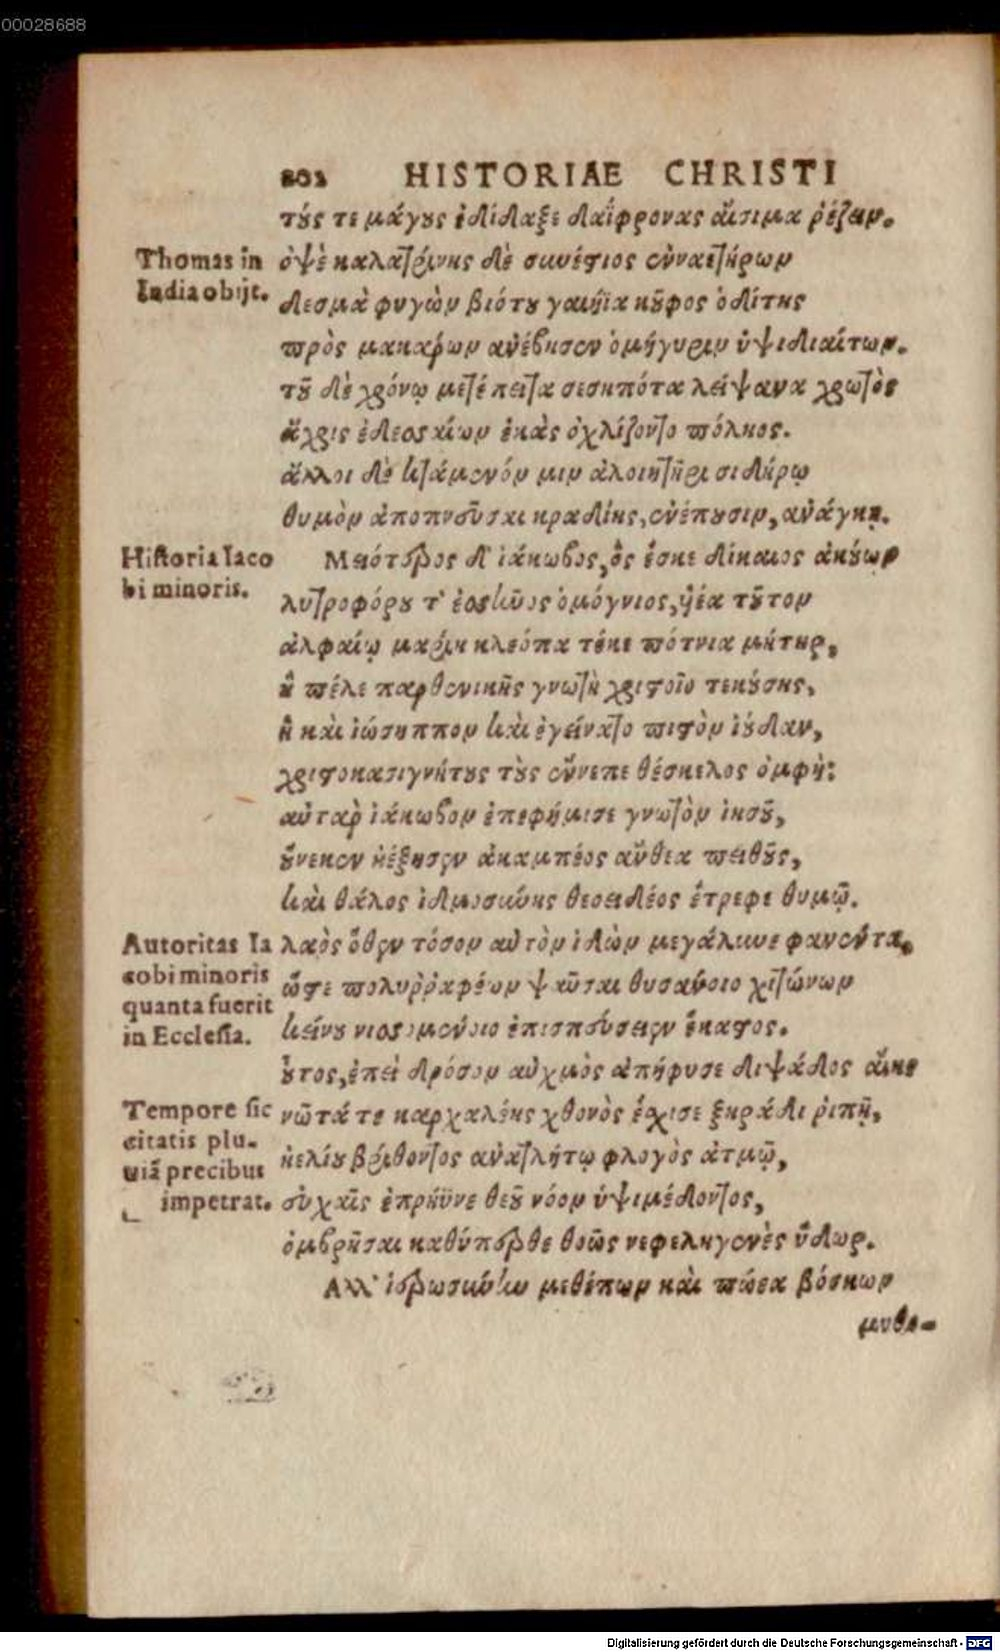 00028688
202 HISTORIAE CHRISTI
τούς τε μάγους ἐδίδαξε δαΐφρονας αἴσιμα ῥέζειν.
Thomas in
India obijt.
ὀψὲ καλατρίνης δὲ συνέστιος ἐνναετήρων
δεσμὰ φυγὼν βιότου γαιήϊα κοῦφος ὁδίτης
πρὸς μακάρων ἀνέβησεν ὁμήγυριν ὑψιδιαίτων.
τοῦ δὲ χρόνῳ μετέπειτα σεσηπότα λείψανα χρωτὸς
ἄχρις ἐδεσκίων ἑκὰς ὀχλίζοντο πόληος.
ἄλλοι δὲ κτάμενόν μιν ἀλοιητῆρι σιδήρῳ
θυμὸν ἀποπνεῦσαι κραδίης, ἐνέπουσιν, ἀνάγκῃ.
Historia Iaco
bi minoris.
Μειότερος δ' ἰάκωβος, ὃς ἔσκε δίκαιος ἀκούων
λυτροφόρου τ' ἐοικὼς ὁμόγνιος, ᾗέα τοῦτον
ἀλφαίῳ μαρίη κλεόπα τέκε πότνια μήτηρ,
ἣ πέλε παρθενικῆς γνωτὴ χριστοῖο τεκούσης,
ἣ καὶ ἰώσηππον καὶ ἐγείνατο πιστὸν ἰούδαν,
χριστοκασιγνήτους τοὺς ἔννεπε θέσκελος ὀμφή:
αὐτὰρ ἰάκωβον ἐπεφήμισε γνωτὸν ἰησοῦ,
οὕνεκεν ἠέξησεν ἀκαμπέος ἄνθεα πειθοῦς,
καὶ θάλος ἰδμοσύνης θεοειδέος ἔτρεφε θυμῷ.
Autoritas Ia
cobi minoris
quanta fuerit
in Ecclesia.
λαὸς ὅθεν τόσον αὐτὸν ἰδὼν μεγάλυνε φανέντα,
ὥστε πολυῤῥαφέων ψαῦσαι θυσάνοιο χιτώνων
κείνου νισσομένοιο ἐπισπεύσειεν ἕκαστος.
οὗτος, ἐπεὶ δρόσον αὐχμὸς ἀπήφυσε διψάδος αἴης
Tempore sic
citatis plu-
uiã precibus
impetrat.
νῶτά τε καρχαλέης χθονὸς ἔσχισε ξηράδι ῥιπῇ,
ἠελίου βρίθοντος ἀνατλήτῳ φλογὸς ἀτμῷ,
εὐχαῖς ἐπρήϋνε θεοῦ νόον ὑψιμέδοντος,
ὀμβρῆσαι καθύπερθε θοῶς νεφεληγενὲς ὕδωρ.
Αλλ' ἱερωσύνην μεθέπων καὶ πώεα βόσκων
μυθο-
Digitalisierung gefördert durch die Deutsche Forschungsgemeinschaft - DFG